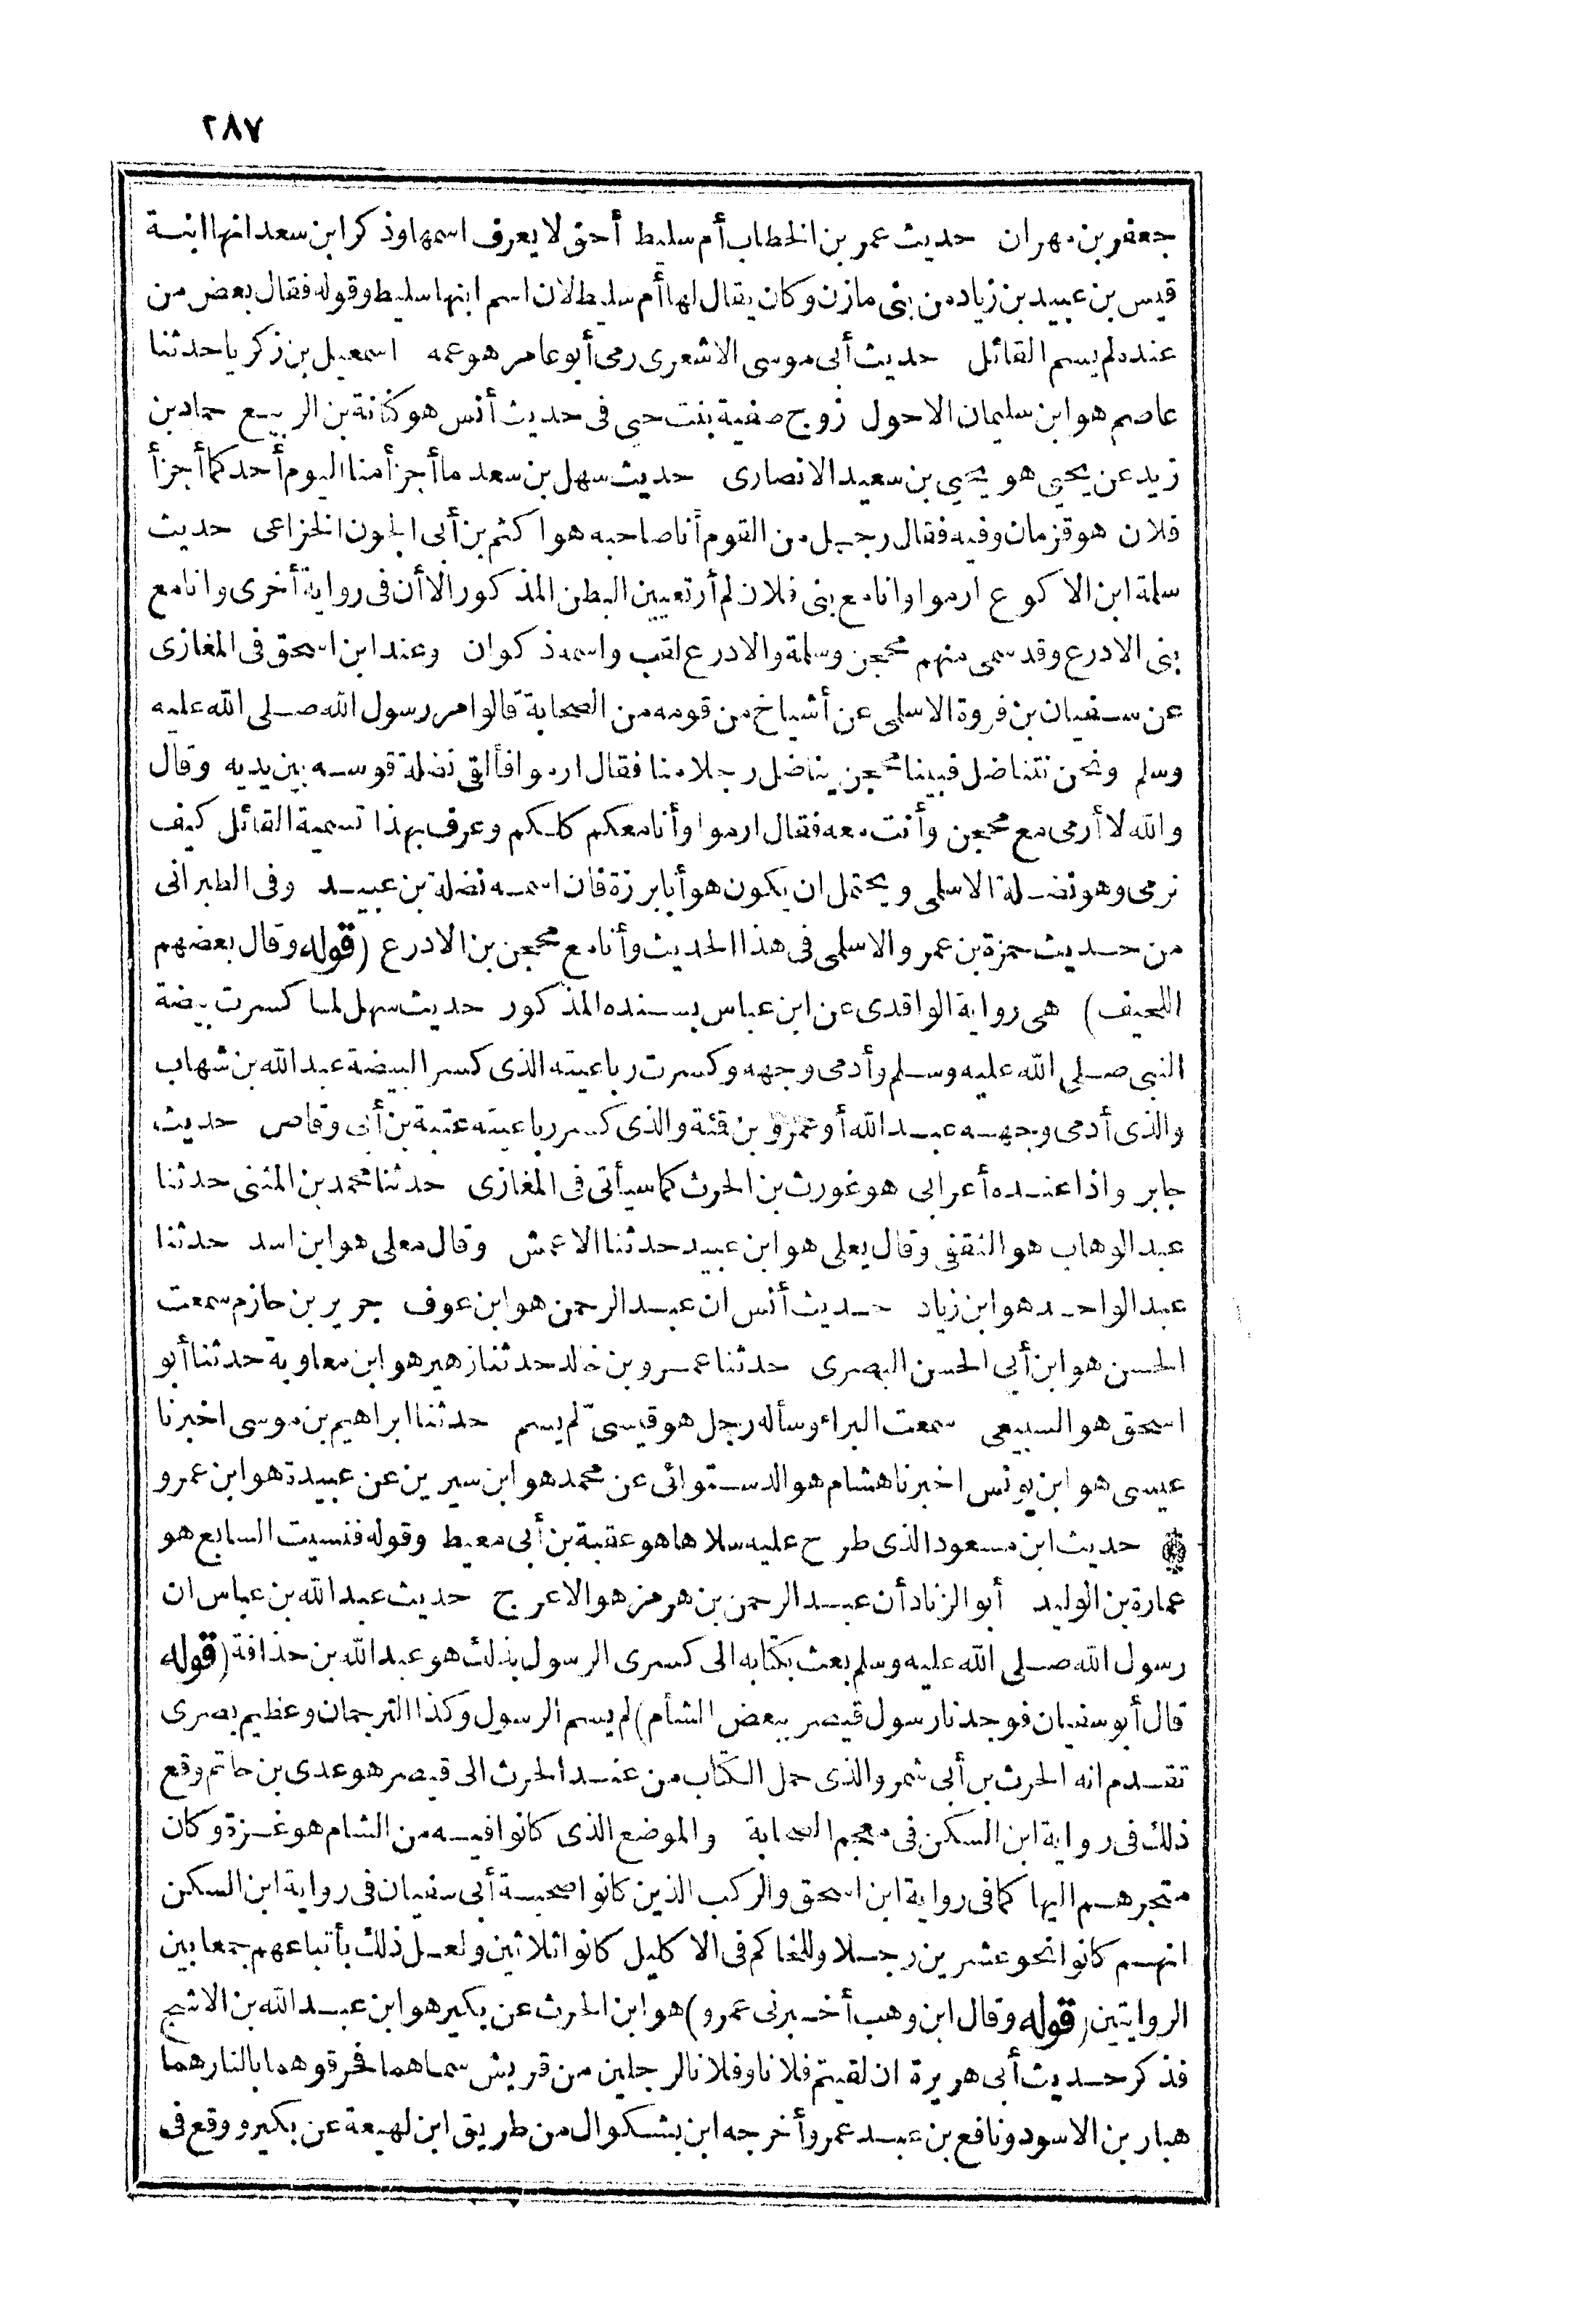 ٢٨٧
جعفر بن مهران حديث عمر بن الخطاب أم سليط أحق لا يعرف اسمها وذكر ابن سعد انها ابنة
قيس بن عبيد بن زياد من بنى مازن وكان يقال لها أم سليط لان اسم ابنها سليط وقوله فقال بعض من
عنده لم يسم القائل حديث أبى موسى الاشعرى رمى أبو عامر هو عمه اسمعيل بن زكريا حدثنا
عاصم هو ابن سليمان الاحول زوج صفية بنت حيى فى حديث أنس هو كنانة بن الربيع حماد بن
زيد عن يحيى هو يحيى بن سعيد الانصارى حديث سهل بن سعد ما أجزأ منا اليوم أحد كما أجزأ
فلان هو قزمان وفيه فقال رجل من القوم أنا صاحبه هو اكثم بن أبى الجون الخزاعى حديث
سلمة ابن الاكوع ارموا وانا مع بنى فلان لم أر تعيين البطن المذكور الا أن فى رواية أخرى وانا مع
بنى الادرع وقد سمى منهم محجن وسلمة والادرع لقب واسمه ذكوان وعند ابن اسحق فى المغازى
عن سفيان بن فروة الاسلمى عن أشياخ من قومه من الصحابة قالوا مر رسول الله صلى الله عليه
وسلم ونحن نتناضل فبينا محجن يناضل رجلا منا فقال ارموا فألقى نضلة قوسه بين يديه وقال
والله لا أرمى مع محجن وأنت معه فقال ارموا وأنا معكم كلكم وعرف بهذا تسمية القائل كيف
نرمى وهو نضلة الاسلمى ويحتمل ان يكون هو أبا برزة فان اسمه نضلة بن عبيد وفى الطبرانى
من حديث حمزة بن عمرو الاسلمى فى هذا الحديث وأنا مع محجن بن الادرع (قوله وقال بعضهم
اللحيف) هى رواية الواقدى عن ابن عباس بسنده المذكور حديث سهل لما كسرت بيضة
النبى صلى الله عليه وسلم وأدمى وجهه وكسرت رباعيته الذى كسر البيضة عبد الله بن شهاب
والذى أدمى وجهه عبد الله أو عمرو بن قئة والذى كسر رباعيته عتبة بن أبى وقاص حديث
جابر واذا عنده أعرابى هو غورث بن الحرث كما سيأتى فى المغازى حدثنا محمد بن المثنى حدثنا
عبد الوهاب هو الثقفى وقال يعلى هو ابن عبيد حدثنا الاعمش وقال معلى هو ابن اسد حدثنا
عبد الواحد هو ابن زياد حديث أنس ان عبد الرحمن هو ابن عوف جرير بن حازم سمعت
الحسن هو ابن أبى الحسن البصرى حدثنا عمرو بن خالد حدثنا زهير هو ابن معاوية حدثنا أبو
اسحق هو السبيعى سمعت البراء وسأله رجل هو قيسىّ لم يسم حدثنا ابراهيم بن موسى اخبرنا
عيسى هو ابن يونس اخبرنا هشام هو الدستوائى عن محمد هو ابن سيرين عن عبيدة هو ابن عمرو
حديث ابن مسعود الذى طرح عليه سلاها هو عقبة بن أبى معيط وقوله فنسيت السابع هو
عمارة بن الوليد أبو الزناد أن عبد الرحمن بن هرمز هو الاعرج حديث عبد الله بن عباس ان
رسول الله صلى الله عليه وسلم بعث بكتابه الى كسرى الرسول بذلك هو عبد الله بن حذافة (قوله
قال أبو سفيان فوجدنا رسول قيصر ببعض الشأم) لم يسم الرسول وكذا الترجمان وعظيم بصرى
تقدم انه الحرث بن أبى شمر والذى حمل الكتاب من عند الحرث الى قيصر هو عدى بن حاتم وقع
ذلك فى رواية ابن السكن فى معجم الصحابة والموضع الذى كانوا فيه من الشام هو غزة وكان
متجرهم اليها كما فى رواية ابن اسحق والركب الذين كانوا صحبة أبى سفيان فى رواية ابن السكن
انهم كانوا نحو عشرين رجلا وللحاكم فى الاكليل كانوا ثلاثين ولعل ذلك بأتباعهم جمعا بين
الروايتين (قوله وقال ابن وهب أخبرنى عمرو) هو ابن الحرث عن بكير هو ابن عبد الله بن الاشج
فذكر حديث أبى هريرة ان لقيتم فلانا وفلانا لرجلين من قريش سماهما فحرقوهما بالنار هما
هبار بن الاسود ونافع بن عبد عمرو أخرجه ابن بشكوال من طريق ابن لهيعة عن بكير ووقع فى